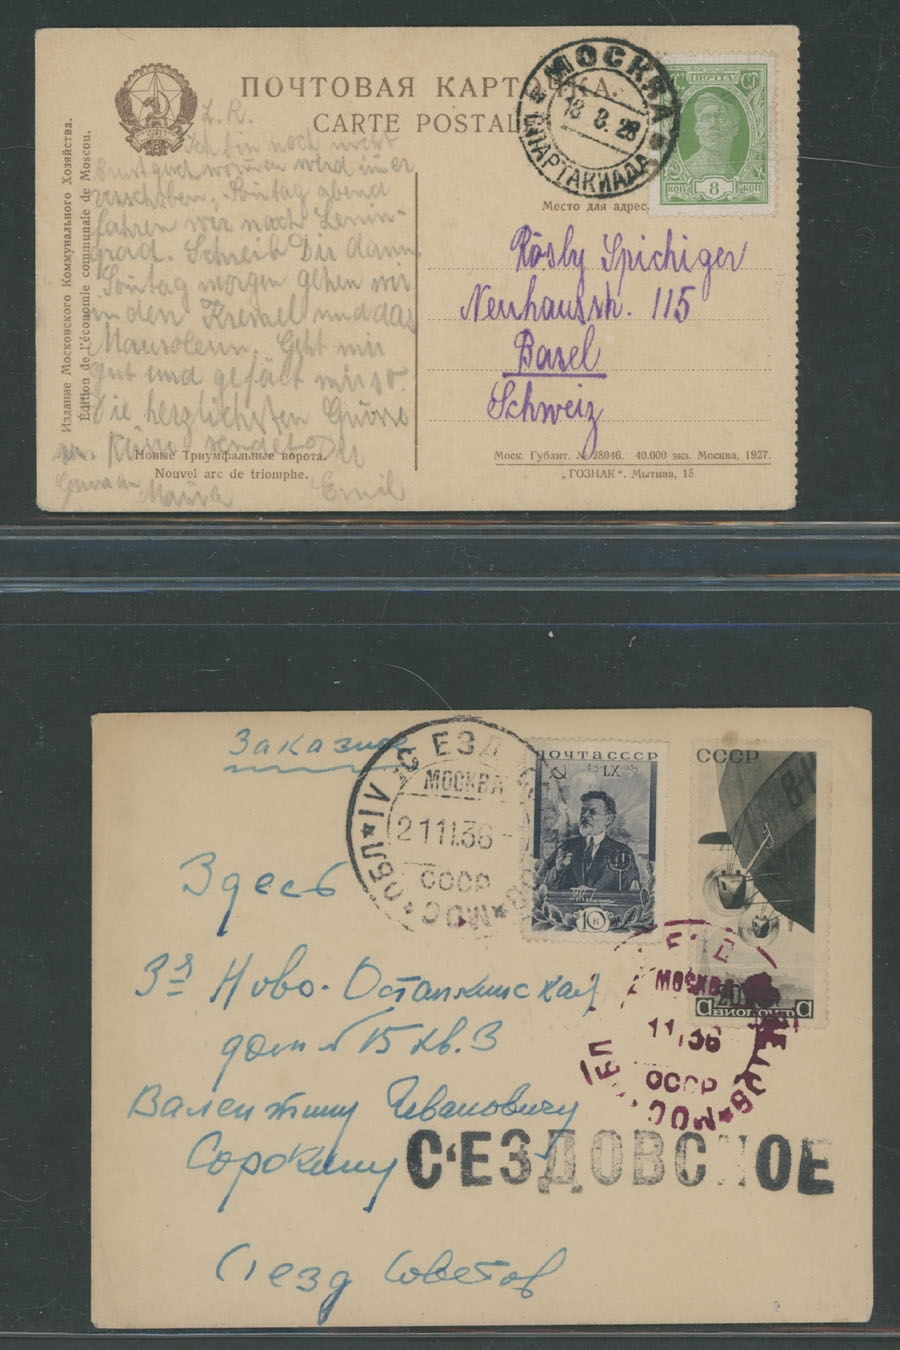 ПОЧТОВАЯ КАРТОЧКА.
CARTE POSTALE
Издание Московского Коммунального Хозяйства.
Édition de l'économie communale de Moscou.
МОСКВА
18 8. 28
СПАРТАКИАДА
ПОЧТА
КОП 8 КОП
Место для адреса
L. R.
Ich bin noch nicht
wird imer
verschoben. Sontag abend
fahren wir nach Lenin-
grad. Schreib Dir dann.
Sontag morgen gehen wir
in den Kremel und das
Mausoleum. Geht mir
gut und gefält mir so.
Die herzlichsten Grüsse
Küsse sendet Dir
Emil
Rösly Spichiger
Neuhausstr. 115
Basel
Schweiz
Новые Триумфальные ворота.
Nouvel arc de triomphe.
Моск. Гублит. № 28046. 40.000 экз. Москва, 1927.
„ГОЗНАК“. Мытная, 15
Заказное
С ЕЗД
МОСКВА
21 11.36
СССР
МОС ОБЛ
ПОЧТА СССР
LX
10 К
СССР
АВИОПОЧТА
Здесь
3я Ново-Останкинская
дом № 15 кв. 3
Валентину Ивановичу
Сорокину
МОСКВА
11.36
СССР
С'ЕЗДОВСКОЕ
Съезд Советов